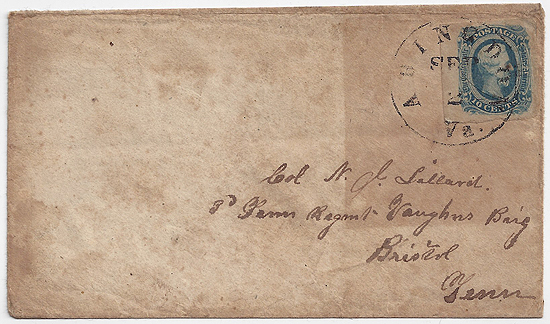 ABINGDON
SEP
Va.
POSTAGE
10 CENTS
Col N. J. Lillard.
3d Tenn Regmt Vaughns Brig
Bristol
Tenn